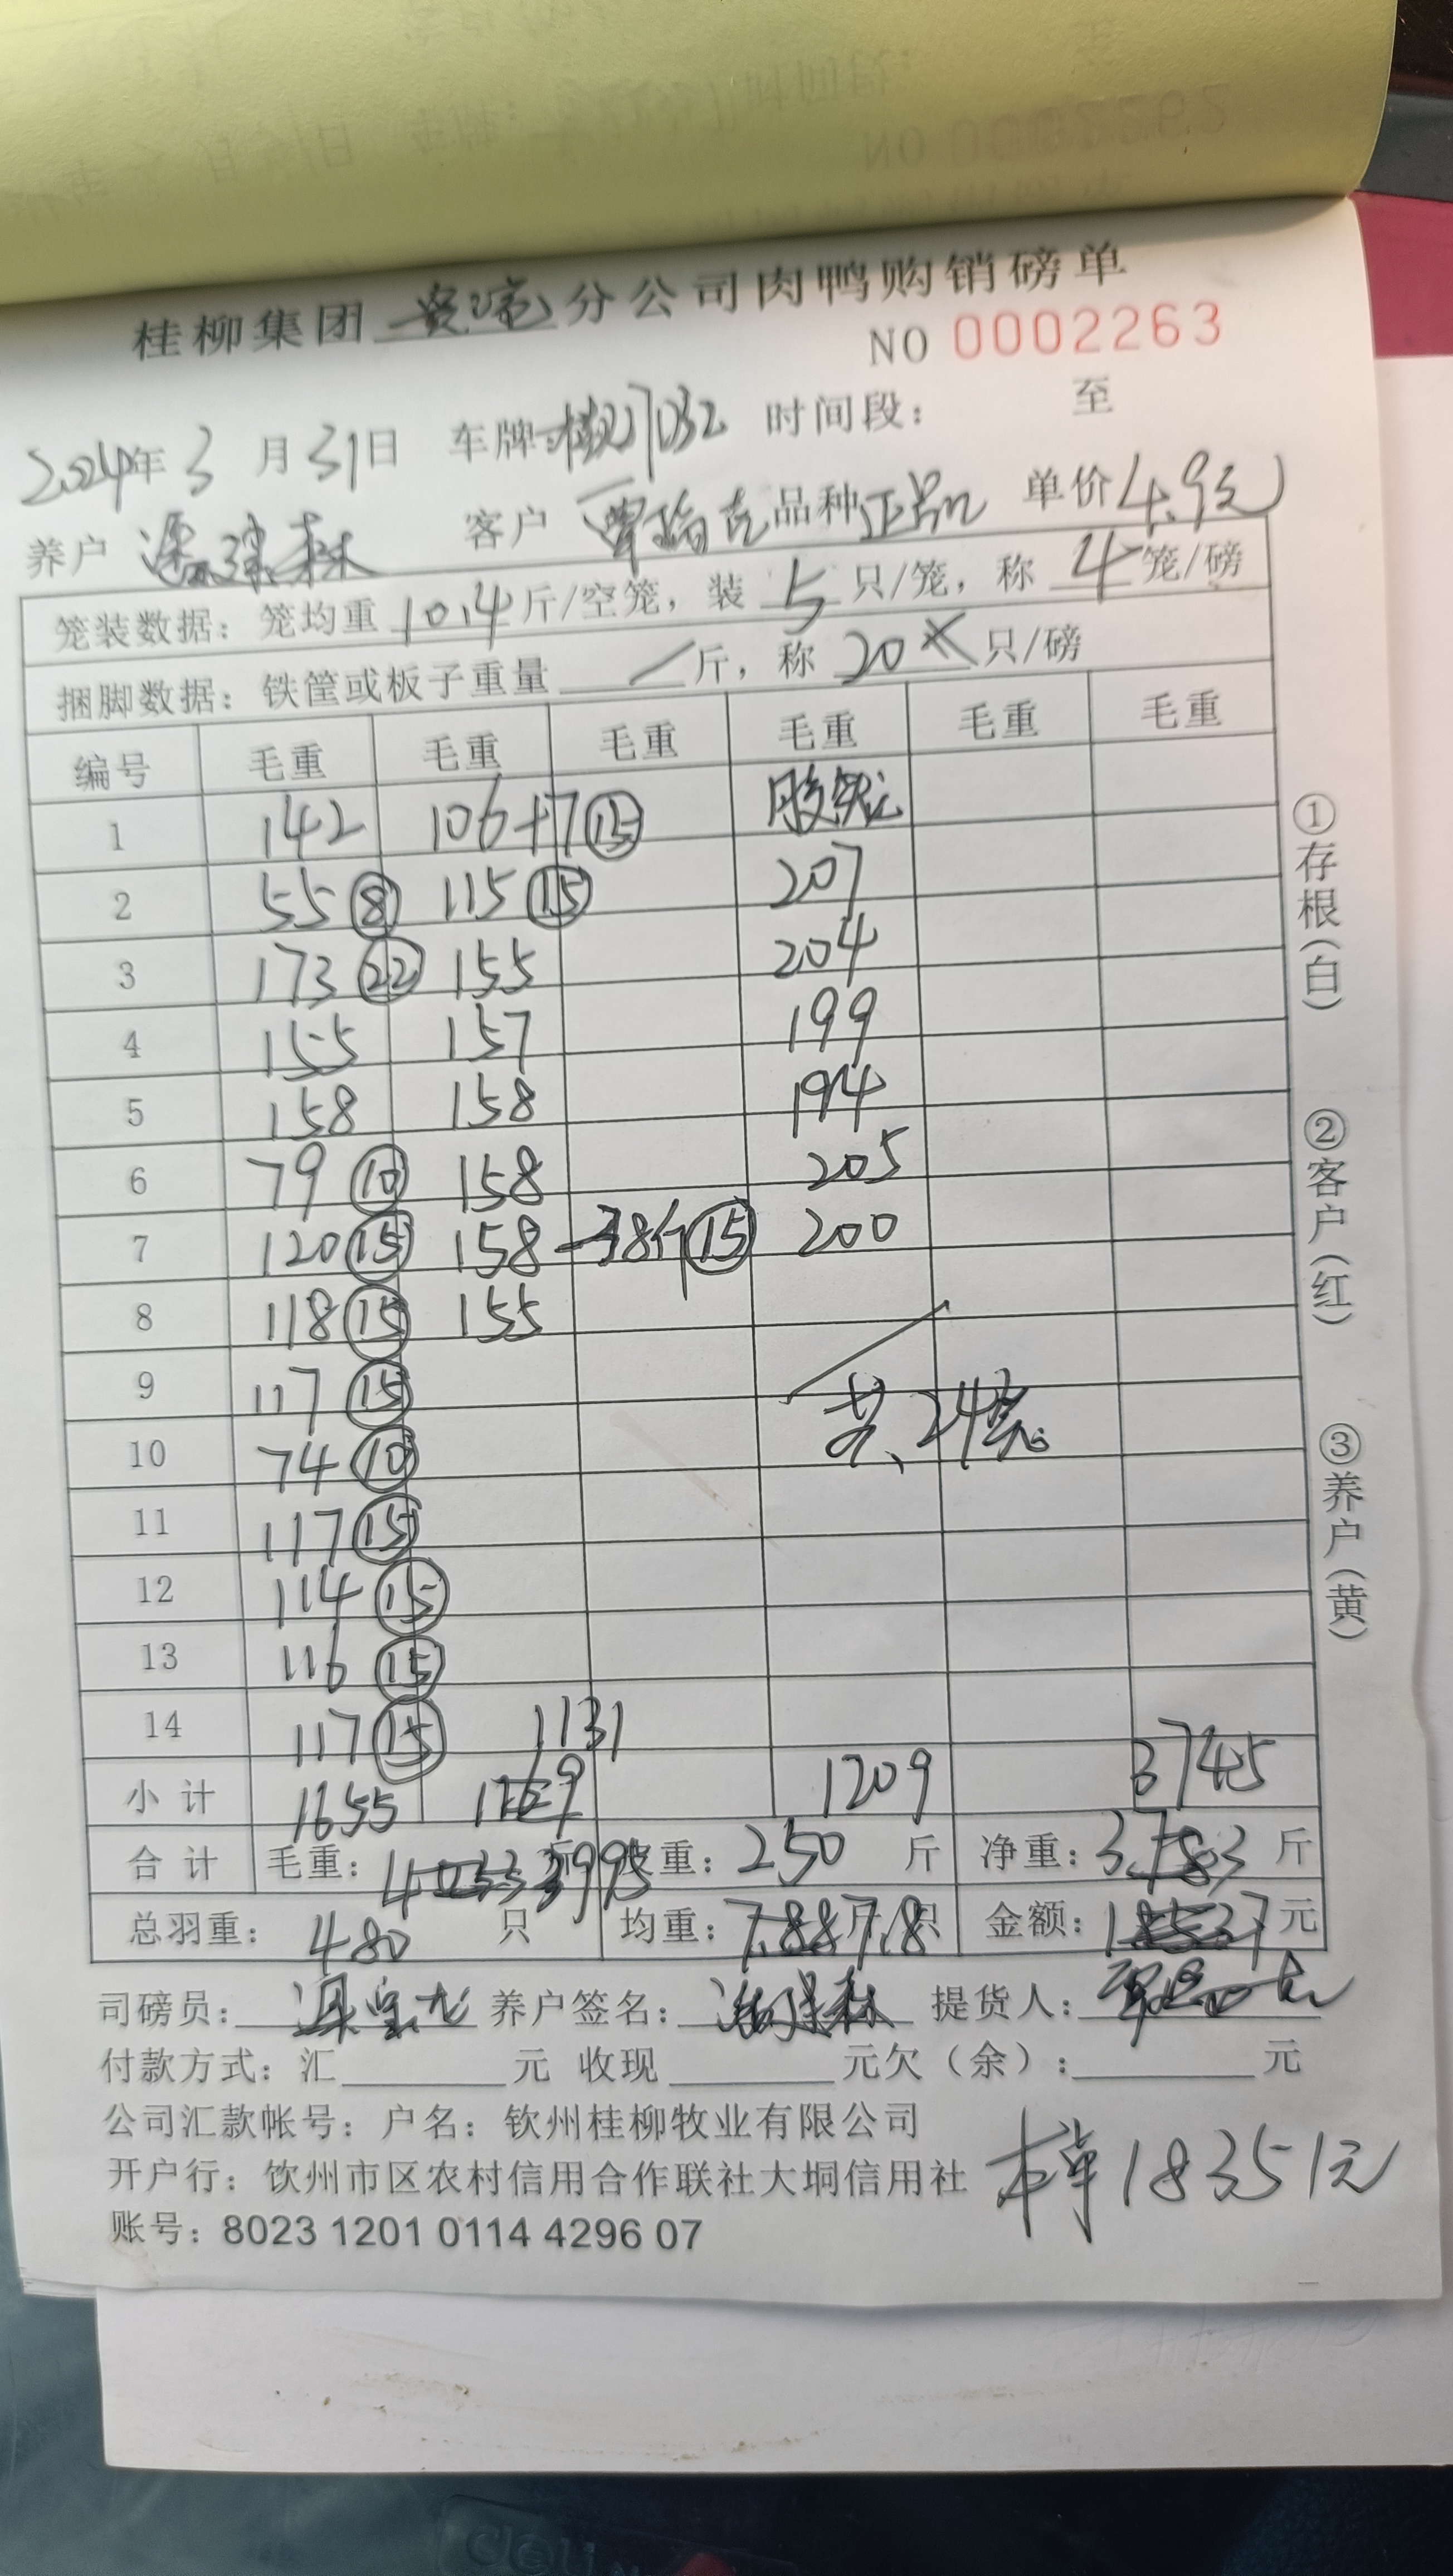 桂柳集团 分公司肉鸭购销磅单
NO 0002263
2024年 3 月 31日 车牌: 时间段: 至
养户 客户 品种 正品 单价 4.9元
笼装数据: 笼均重 10.4 斤/空笼, 装 5 只/笼, 称 4 笼/磅
捆脚数据: 铁筐或板子重量 / 斤, 称 20 只/磅
编号 毛重 毛重 毛重 毛重 毛重 毛重
1 142 106+17 ⑮ 胶笼
2 55 ⑧ 115 ⑮ 207
3 173 ㉒ 155 204
4 155 157 199
5 158 158 194
6 79 ⑩ 158 205
7 120 ⑮ 158 -38斤 ⑮ 200
8 118 ⑮ 155
9 117 ⑮ 共、24笼
10 74 ⑩
11 117 ⑮
12 114 ⑮
13 116 ⑮
14 117 ⑮ 1131
小计 1655 1209 3745
合计 毛重: 3995 皮重: 250 斤 净重: 3783 斤
总羽重: 480 只 均重: 7.88 7.8 只 金额: 18537 元
司磅员: 养户签名: 提货人:
付款方式: 汇 元 收现 元欠(余): 元
公司汇款帐号: 户名: 钦州桂柳牧业有限公司
开户行: 钦州市区农村信用合作联社大垌信用社 本单18351元
账号: 8023 1201 0114 4296 07
①存根(白)
②客户(红)
③养户(黄)
deli